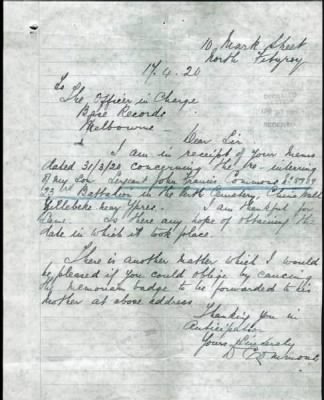 10 Mark Street
North Fitzroy
17.4.20
To
The Officer in Charge
Base Records
Melbourne
Dear Sir
I am in receipt of your Memo
dated 31/3/20 concerning the re-interring
of my Son Sergeant John Francis Commons
23rd Battalion in the Perth Cemetery, China Wall
Zillebeke near Ypres. I am thankful for
same. Is there any hope of obtaining the
date in which it took place.
There is another matter which I would
be pleased if you could oblige by causing
the memoriam badge to be forwarded to his
mother at above address
Thanking You in
Anticipation
Yours Sincerely
D Commons